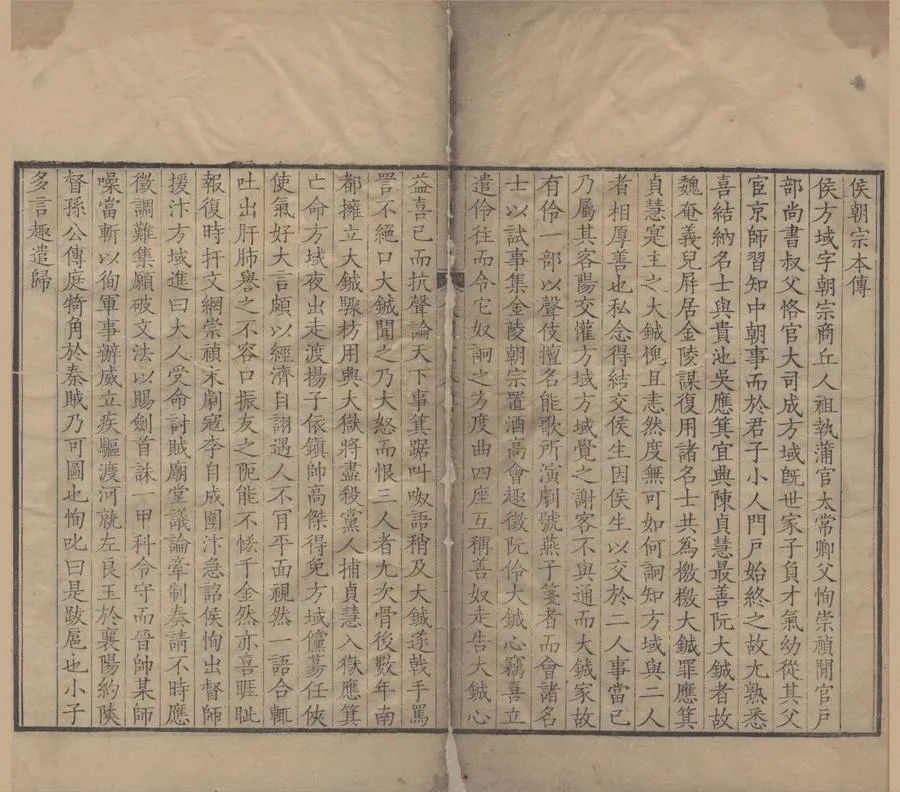 侯朝宗本傳
侯方域字朝宗商丘人祖執蒲官太常卿父恂崇禎閒官戶
部尚書叔父恪官大司成方域旣世家子負才氣幼從其父
宦京師習知中朝事而於君子小人門戶始終之故尤熟悉
喜結納名士與貴池吳應箕宜興陳貞慧最善阮大鋮者故
魏奄義兒屛居金陵謀復用諸名士共爲檄檄大鋮罪應箕
貞慧寔主之大鋮愧且恚然度無可如何詗知方域與二人
者相厚善也私念得結交侯生因侯生以交於二人事當已
乃屬其客陽交懽方域方域覺之謝客不與通而大鋮家故
有伶一部以聲伎擅名能歌所演劇號燕子箋者而會諸名
士以試事集金陵朝宗置酒高會趣徵阮伶大鋮心竊喜立
遣伶往而令它奴詗之方度曲四座互稱善奴走告大鋮心
益喜已而抗聲論天下事箕踞叫呶語稍及大鋮遂戟手罵
詈不絕口大鋮聞之乃大怒而恨三人者尤次骨後數年南
都擁立大鋮驟枋用興大獄將盡殺黨人捕貞慧入獄應箕
亡命方域夜出走渡揚子依鎮帥高傑得免方域儻蕩任俠
使氣好大言頗以經濟自詡遇人不肎平面視然一語合輒
吐出肝肺譽之不容口振友之阨能不恡千金然亦喜睚眦
報復時扞文網崇禎末劇寇李自成圍汴急詔侯恂出督師
援汴方域進曰大人受命討賊廟堂議論牽制奏請不時應
徵調難集願破文法以賜劍首誅一甲科令守而晉師某師
噪當斬以徇軍事辦威立疾驅渡河就左良玉於襄陽約陝
督孫公傳庭犄角於秦賊乃可圖也恂叱曰是跋扈也小子
多言趣遣歸